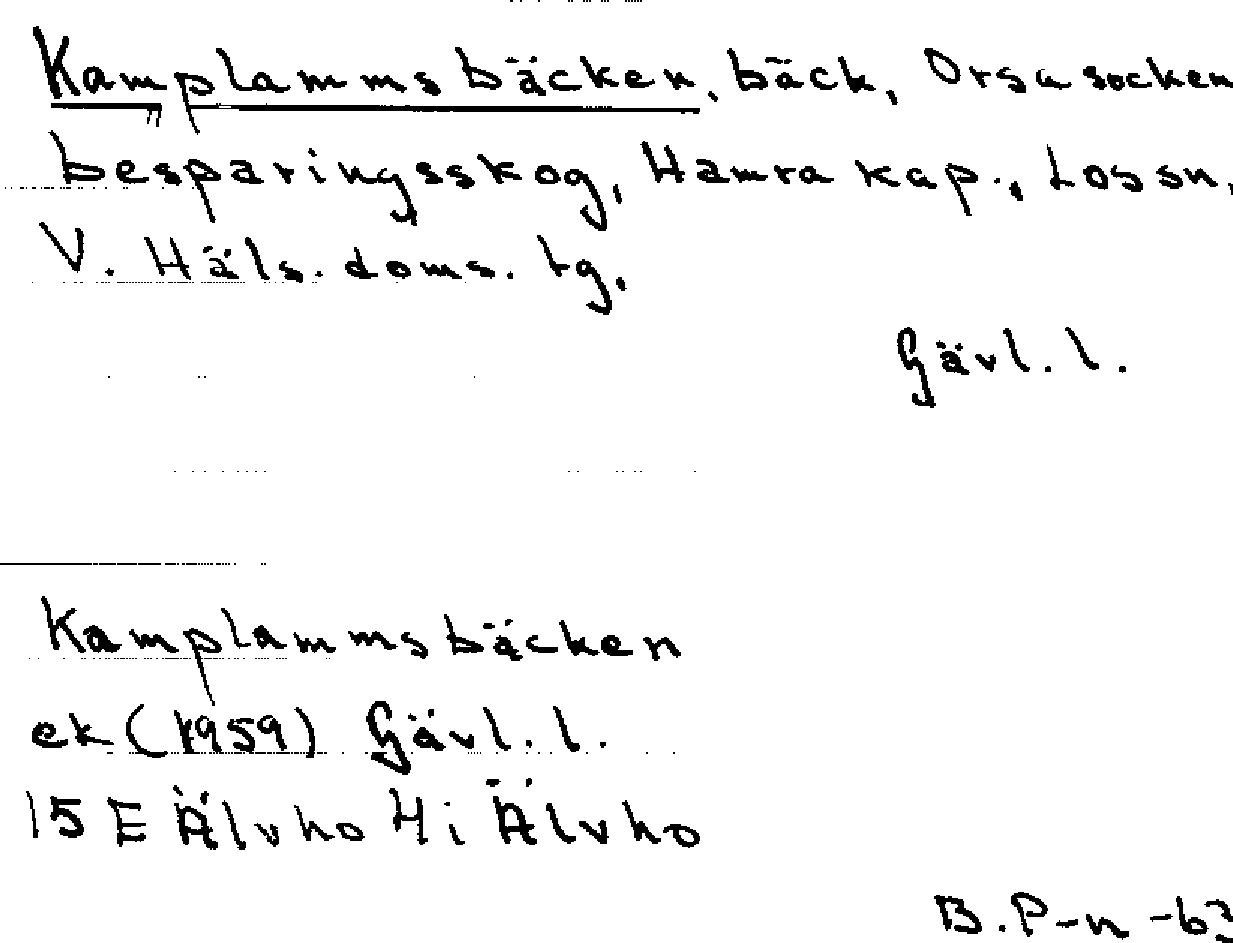 Kamplammsbäcken, bäck, Orsa socken
besparingsskog, Hamra kap., Los sn,
V. Häls. doms. tg,
Gävl. l.
Kamplammsbäcken
ek (1959) Gävl. l.
15 E Älvho 4i Älvho
B. P-n -63